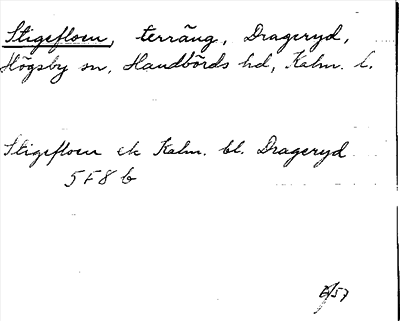 Stigefloen, terräng, Drageryd,
Högsby sn, Handbörds hd, Kalm. l.
Stigefloen ek Kalm. bl. Drageryd
5F8b
/57